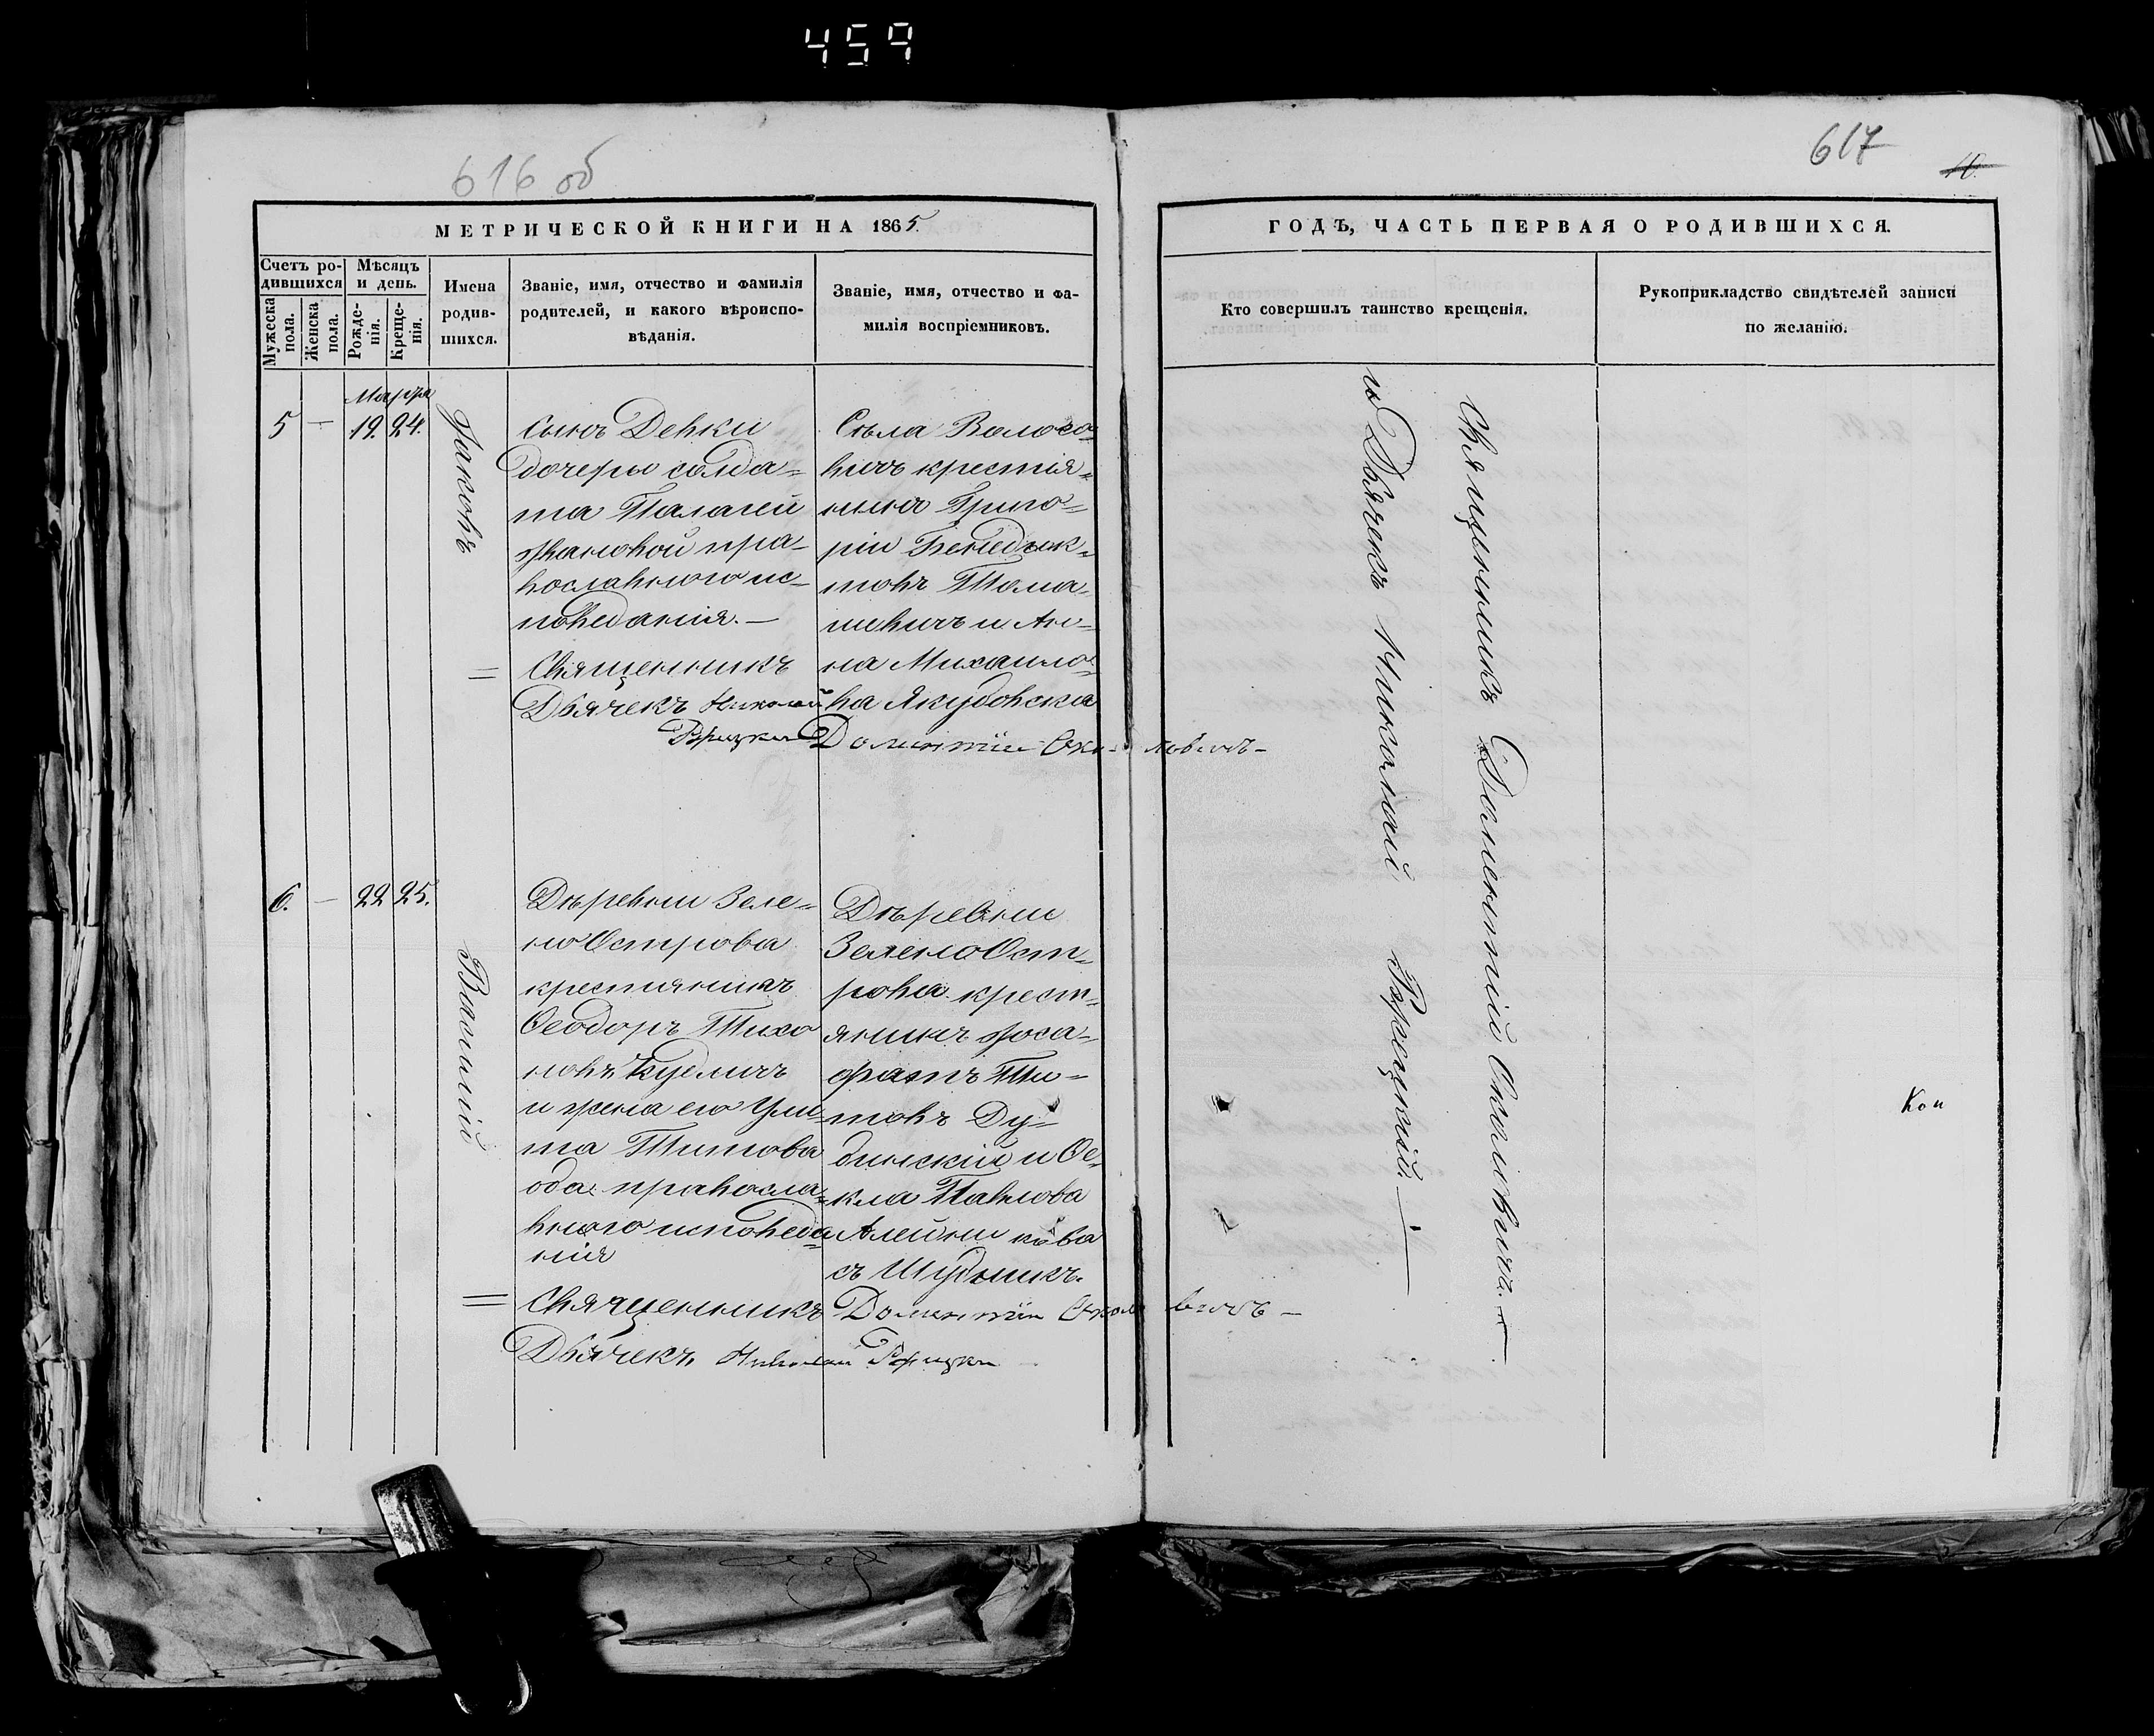 459
616 об
617
10.
МЕТРИЧЕСКОЙ КНИГИ НА 1865.
ГОДЪ, ЧАСТЬ ПЕРВАЯ О РОДИВШИХСЯ.
Счетъ ро-
дившихся
Мужеска
пола.
Женска
пола.
Мѣсяцъ
и день.
Рожде-
нія.
Креще-
нія.
Имена
родив-
шихся.
Званіе, имя, отчество и фамилія
родителей, и какого вѣроиспо-
вѣданія.
Званіе, имя, отчество и фа-
милія воспріемниковъ.
Кто совершилъ таинство крещенія.
Рукоприкладство свидѣтелей записи
по желанію.
Марта
5 — 19. 24.
Іаковъ
сынъ Девки
дочеры солда-
та Палагеи
Жановой пра-
вославного ис-
поведания. —
Священникъ
Дьячекъ Николай
Рѣрецкий
Села Волосо-
вичъ крестія-
нинъ Григо-
рій Бенедык-
товъ Тома-
шевичъ и Ан-
на Михайло-
ва Якубовска
Дометій
6. — 22 25.
Василій
Деревни Зеле-
но Острова
крестянинъ
Ѳеодоръ Тихо
новъ
и жена его Ули-
та Титова
оба правосла-
вного исповеда-
ния
Священникъ
Дьячекъ Николай
Деревни
Зелено Ост-
рова крест-
янинъ Іоса-
фатъ Ти-
товъ Ду-
бинский и Ѳе-
кла Павлова
Священникъ Дометій
и Дьячекъ Николай
Кон